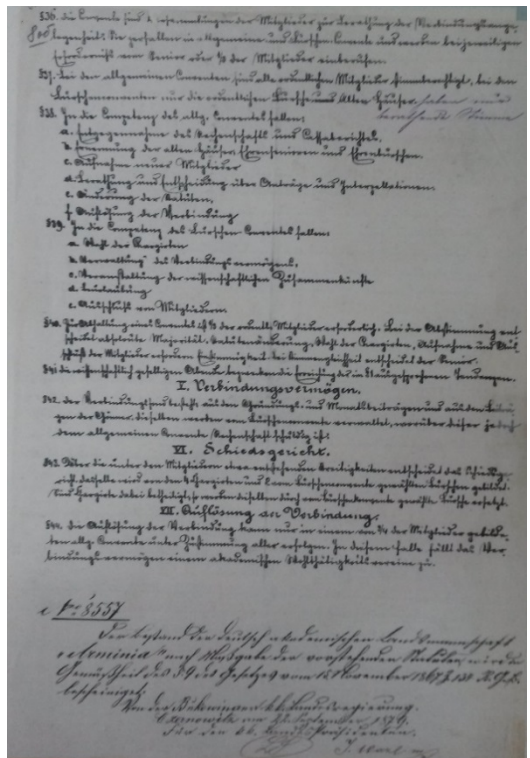 §36. die Convente sind Versammlungen der Mitglieder zur Berathung der Verbindungsange-
legenheiten. Sie zerfallen in allgemeine und Burschen Convente und werden bei jeweiligen
Erforderniss vom Senior oder 1/3 der Mitglieder einberufen.
§37. bei den allgemeinen Conventen sind alle ordentlichen Mitglieder stimmberechtigt, bei den
Burschenconventen nur die ordentlichen Bursche und Alten Häuser haben nur
berathende Stimme
§38. In die Competenz des allg. Conventes fallen:
a. Entgegennahme des Rechenschafts und Cassaberichtes.
b. Ernennung der alten Häuser, Ehrensenioren und Ehrenburschen.
c. Aufnahme neuer Mitglieder
d. Berathung und Entscheidung über Anträge und Interpellationen.
e. Änderung der Statuten.
f. Auflösung der Verbindung
§39. In die Competenz des Burschen Conventes fallen:
a. Wahl der Chargirten
b. Verwaltung des Verbindungsvermögens,
c. Veranstaltung der wissenschaftlichen Zusammenkünfte
d. Beurlaubung
e. Ausschluss von Mitgliedern.
§40. Zur Abhaltung eines Conventes ist 1/2 der Mitglieder erforderlich. Bei der Abstimmung ent-
scheidet absolute Majorität. Statutenänderung, Wahl der Chargirten, Aufnahme und Aus-
schluss der Mitglieder entscheidet der Senior.
§41. die wissenschaftlich geselligen Abende die Erreichung der im §1 ausgesprochenen Tendenzen.
V. Verbindungsvermögen.
§42. der Verbindungsfond besteht aus den Gründungs- und Monatsbeiträgen und aus den
gen der Gönner. dieselben werden vom Burschenconvente verwaltet, worüber dieser jedoch
dem allgemeinen Convente Rechenschaft schuldig ist.
VI. Schiedsgericht.
§43. Über die unter den Mitgliedern etwa entstehenden Streitigkeiten entscheidet das Schiedsge-
richt, dasselbe wird von den Chargirten und vom Burschenconvente gewählten Burschen gebildet.
Sind Chargirte dabei betheiligt, so werden dieselben durch vom Burschenconvente gewählte Bursche ersetzt.
VII. Auflösung der Verbindung.
§44. die Auflösung der Verbindung kann nur in einem von 3/4 der Mitglieder gebilde-
ten allg. Convente unter Zustimmung aller erfolgen. In diesem Falle fällt das Ver-
bindungsvermögen einem akademischen Wohlthätigkeitsvereine zu.
No 8557
Der Bestand der deutsch akademischen Landsmannschaft
"Arminia" nach Massgabe der vorstehenden Statuten wird in
Gemässheit des §9 des Gesetzes vom 15 November 1867 Z. 134 R.G.B.
bescheinigt.
Von der Bukowinaer k.k. Landesregierung.
Czernowitz am September 1879.
Für den k.k. Landespräsidenten.